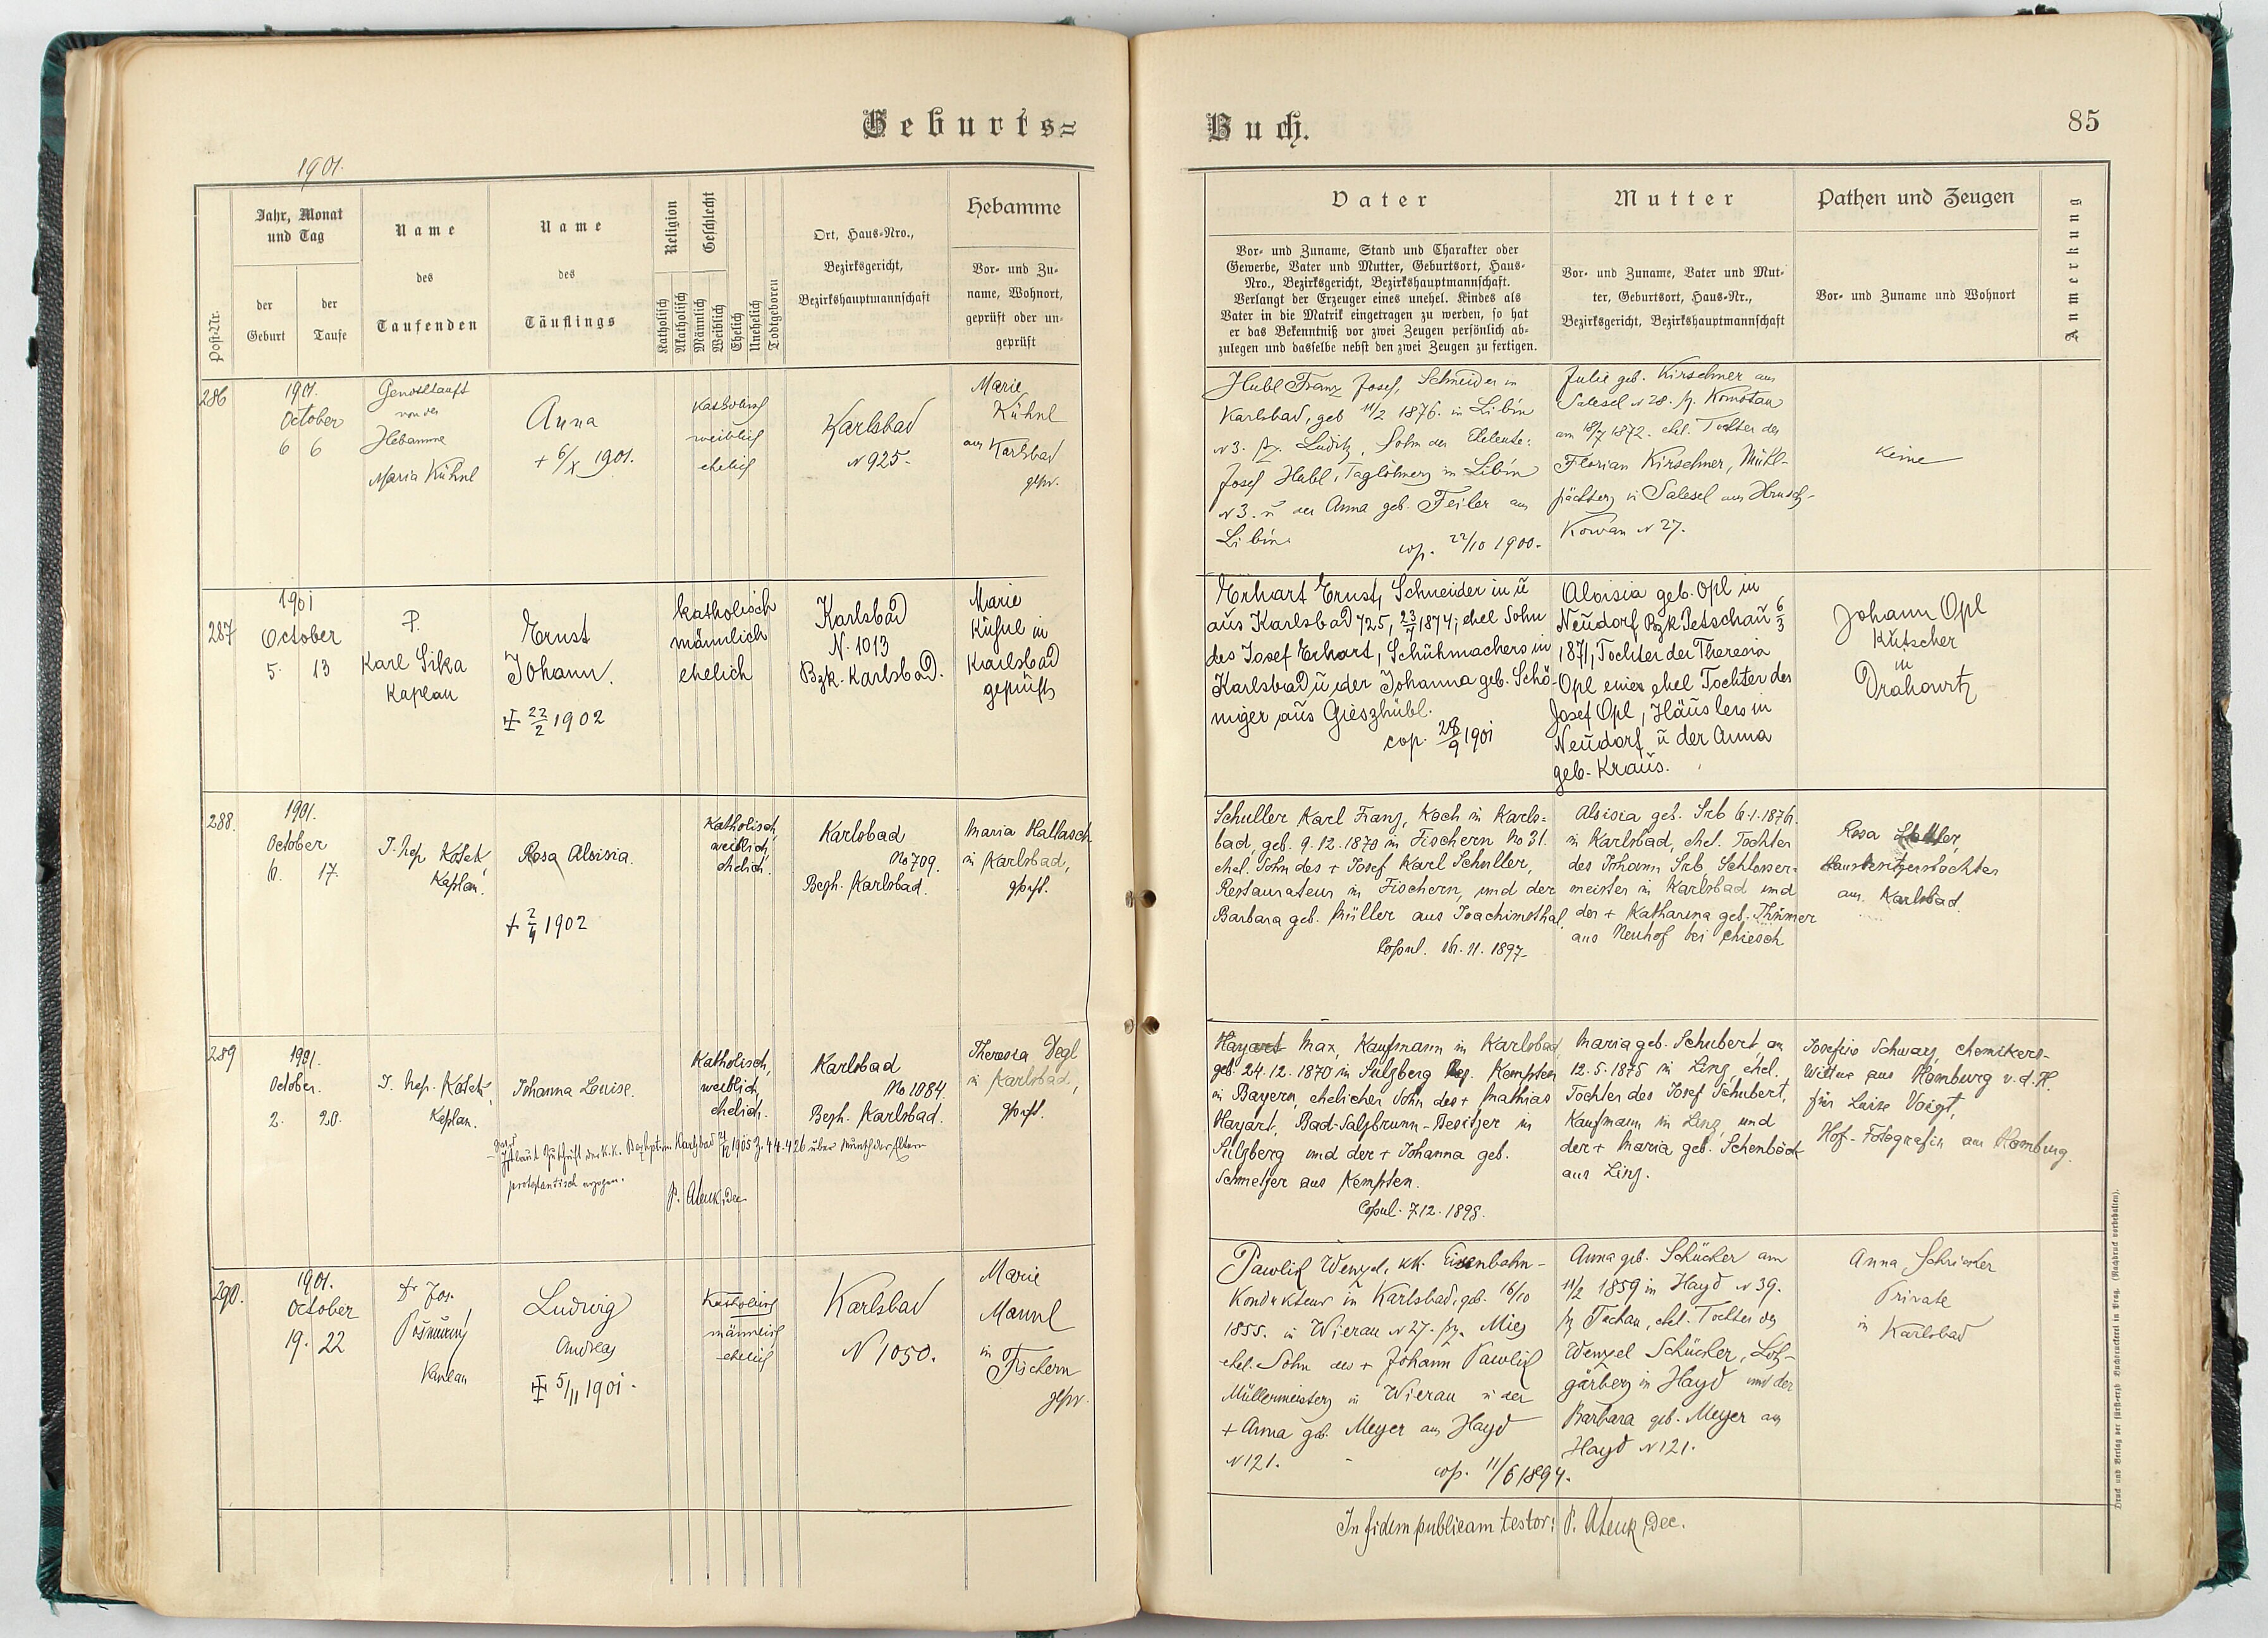 Geburts=
Buch.
85
1901.
Post-Nr.
Jahr, Monat
und Tag
der
Geburt
der
Taufe
Name
des
Taufenden
Name
des
Täuflings
Religion
Katholisch
Akatholisch
Geschlecht
Männlich
Weiblich
Ehelich
Unehelich
Todtgeboren
Ort, Haus-Nro.,
Bezirksgericht,
Bezirkshauptmannschaft
Hebamme
Vor- und Zu-
name, Wohnort,
geprüft oder un-
geprüft
Vater
Vor- und Zuname, Stand und Charakter oder
Gewerbe, Vater und Mutter, Geburtsort, Haus-
Nro., Bezirksgericht, Bezirkshauptmannschaft.
Verlangt der Erzeuger eines unehel. Kindes als
Vater in die Matrik eingetragen zu werden, so hat
er das Bekenntniß vor zwei Zeugen persönlich ab-
zulegen und dasselbe nebst den zwei Zeugen zu fertigen.
Mutter
Vor- und Zuname, Vater und Mut-
ter, Geburtsort, Haus-Nr.,
Bezirksgericht, Bezirkshauptmannschaft
Pathen und Zeugen
Vor- und Zuname und Wohnort
Anmerkung
286
1901.
October
6 6
von der
Hebamme
Maria Kühnl
Anna
+ 6/X 1901.
katholisch
weiblich
ehelich
Karlsbad
N 925-
Marie
Kühnl
aus Karlsbad
gepr.
Hubl Franz Josef, Schneider in
Karlsbad, geb 11/2 1876. in Libin
N 3. Bz. Luditz, Sohn der Eheleute:
Josef Hubl, Taglöhners in Libin
N 3. ü der Anna geb. Feiler aus
Libin.
cop. 22/10 1900.
Julie geb. Kirschner aus
Salesel N 28. Bz. Komotau
am 18/7 1872. ehel. Tochter des
Florian Kirschner, Mühl-
pächters in Salesel aus Hrusch-
Kowan N 27.
keine
287
1901
October
5. 13
P.
Karl Sika
Kaplan
Ernst
Johann.
22/2 1902
katholisch
männlich
ehelich
Karlsbad
N. 1013
Bzk. Karlsbad.
Marie
Kühnl in
Karlsbad
geprüft
Erhart Ernst, Schneider in ü
aus Karlsbad 725, 23/7 1874; ehel Sohn
des Josef Erhart, Schuhmachers in
Karlsbad ü der Johanna geb. Schö-
niger aus Gieszhübl.
cop. 28/9 1901
Aloisia geb. Opl in
Neudorf Bzk Petschau 6/3
1871, Tochter der Theresia
Opl einer ehel Tochter des
Josef Opl, Häuslers in
Neudorf ü der Anna
geb. Kraus.
Johann Opl
Kutscher
in
Drahowitz
288.
1901.
October
6. 17.
J. Nep. Košek
Kaplan.
Rosa Aloisia.
+ 2/4 1902
Katholisch,
weiblich,
ehelich.
Karlsbad
No 709.
Bezh. Karlsbad.
Maria Hallasch
in Karlsbad,
geprft.
Schuller Karl Franz, Koch in Karls=
bad, geb. 9.12.1870 in Fischern No 31.
ehel. Sohn des + Josef Karl Schuller,
Restaurateur in Fischern, und der
Barbara geb. Müller aus Joachimsthal.
Copul. 16.11.1897-
Aloisia geb. Srb 6.1.1876.
in Karlsbad, ehel. Tochter
des Johann Srb, Schlosser-
meister in Karlsbad und
der + Katharina geb. Thümer
aus Neuhof bei Chiesch
Rosa
Hausbesitzerstochter
aus Karlsbad.
289
1901.
October.
2. 20.
J. Nep. Košek,
Kaplan.
Johanna Louise.
Katholisch,
weiblich,
ehelich.
Karlsbad
No 1084.
Bezh. Karlsbad.
Theresia Degl
in Karlsbad,
geprft.
laut Zuschrift der k.k. Bezhptm Karlsbad 1905 Z. 44.426 über Wunsch der Eltern
protestantisch erzogen.
P. Dec
Hayart Max, Kaufmann in Karlsbad,
geb. 24.12.1870 in Sulzberg Bez. Kempten
in Bayern, ehelicher Sohn des + Mathias
Hayart, Bad-Salzbrunn-Besitzer in
Sulzberg und der + Johanna geb.
Schmelzer aus Kempten.
Copul. 7.12.1898.
Maria geb. Schubert, am
12.5.1875 in Linz, ehel.
Tochter des Josef Schubert,
Kaufmann in Linz, und
der + Maria geb. Schenböck
aus Linz.
Josefine Schwarz, Chemikers-
Witwe aus Homburg v.d.H.
für Luise Voigt,
Hof-Fotografin aus Homburg.
290.
1901.
October
19. 22
Dr Jos.
Pošmurný
Kaplan
Ludwig
Andreas
5/11 1901.
Katholisch
männlich
ehelich
Karlsbad
N 1050.
Marie
Mannl
in
Fischern
gepr.
Pawlik Wenzel, kk. Eisenbahn-
Kondukteur in Karlsbad, geb. 16/10
1855. in Wierau N 27. Bz. Mies
ehel. Sohn des + Johann Pawlik
Müllermeisters in Wierau ü der
+ Anna geb. Meyer aus Hayd
N 121.
cop. 11/6 1894.
Anna geb. Schücker am
11/2 1859 in Hayd N 39.
Bz Tachau, ehel. Tochter des
Wenzel Schücker, Loh-
gärbers in Hayd und der
Barbara geb. Meyer aus
Hayd N 121.
Anna Schricker
Private
in Karlsbad
In fidem publicam testor: P. Dec.
Druck und Verlag der fürst-erzb Buchdruckerei in Prag. (Nachdruck vorbehalten).